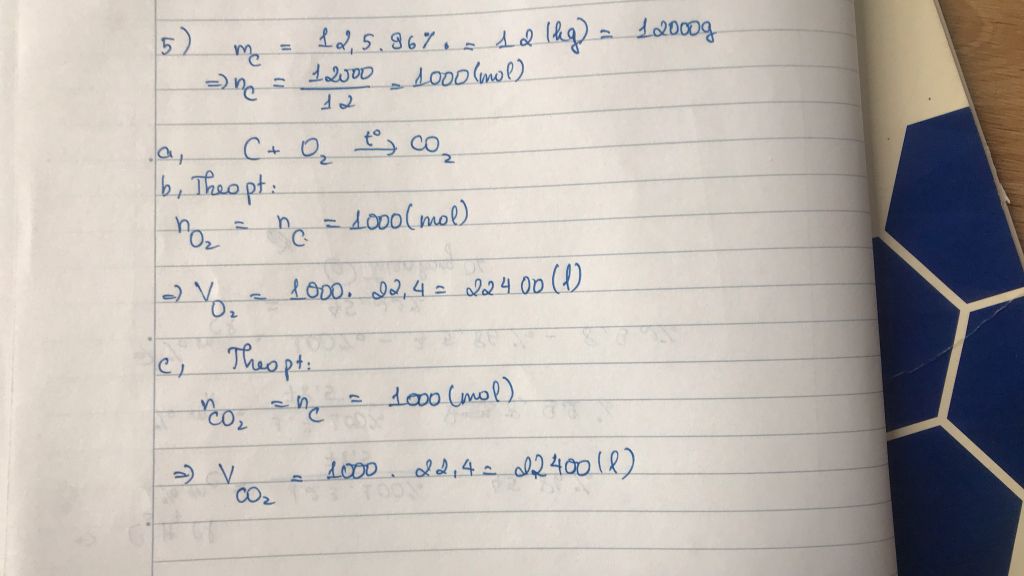 5) m_C = 12,5.96%. = 12 (kg) = 12000g
=> n_C = 12000/12 = 1000 (mol)
a, C + O₂ t°→ CO₂
b, Theo pt:
n_O₂ = n_C = 1000 (mol)
=> V_O₂ = 1000. 22,4 = 22400 (l)
c, Theo pt:
n_CO₂ = n_C = 1000 (mol)
=> V_CO₂ = 1000 . 22,4 = 22400 (l)